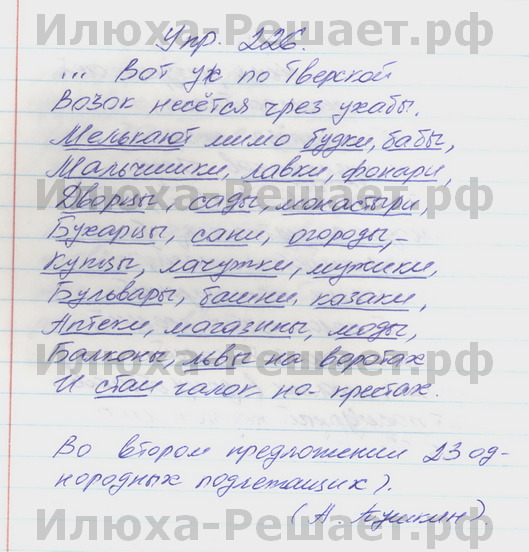 Илюха-Решает.рф
Упр. 226.
... Вот уж по Тверской
Возок несётся чрез ухабы.
Мелькают мимо будки, бабы,
Мальчишки, лавки, фонари,
Илюха-Решает.рф
Дворцы, сады, монастыри,
Бухарцы, сани, огороды,-
Купцы, лачужки, мужики,
Бульвары, башни, казаки,
Аптеки, магазины, моды,
Балконы, львы на воротах
Илюха-Решает.рф
И стаи галок на крестах.
Во втором предложении 23 од-
нородных подлежащих).
(А. Пушкин).
Илюха-Решает.рф